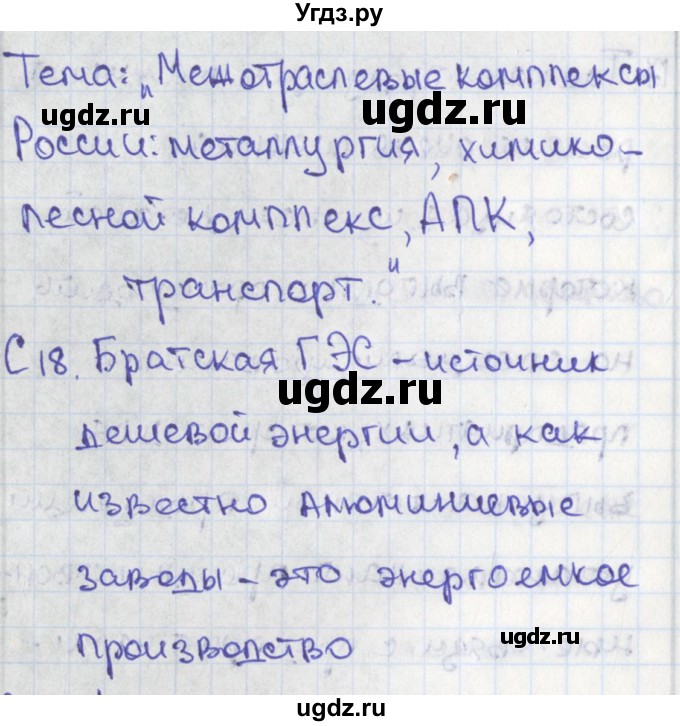 Угдз.ру
Тема: „Межотраслевые комплексы
России: металлургия, химико-
лесной комплекс, АПК,
транспорт."
С 18. Братская ГЭС – источник
дешевой энергии, а как
известно алюминиевые
заводы – это энергоемкое
производство
ugdz.ru
ugdz.ru
ugdz.ru
ugdz.ru